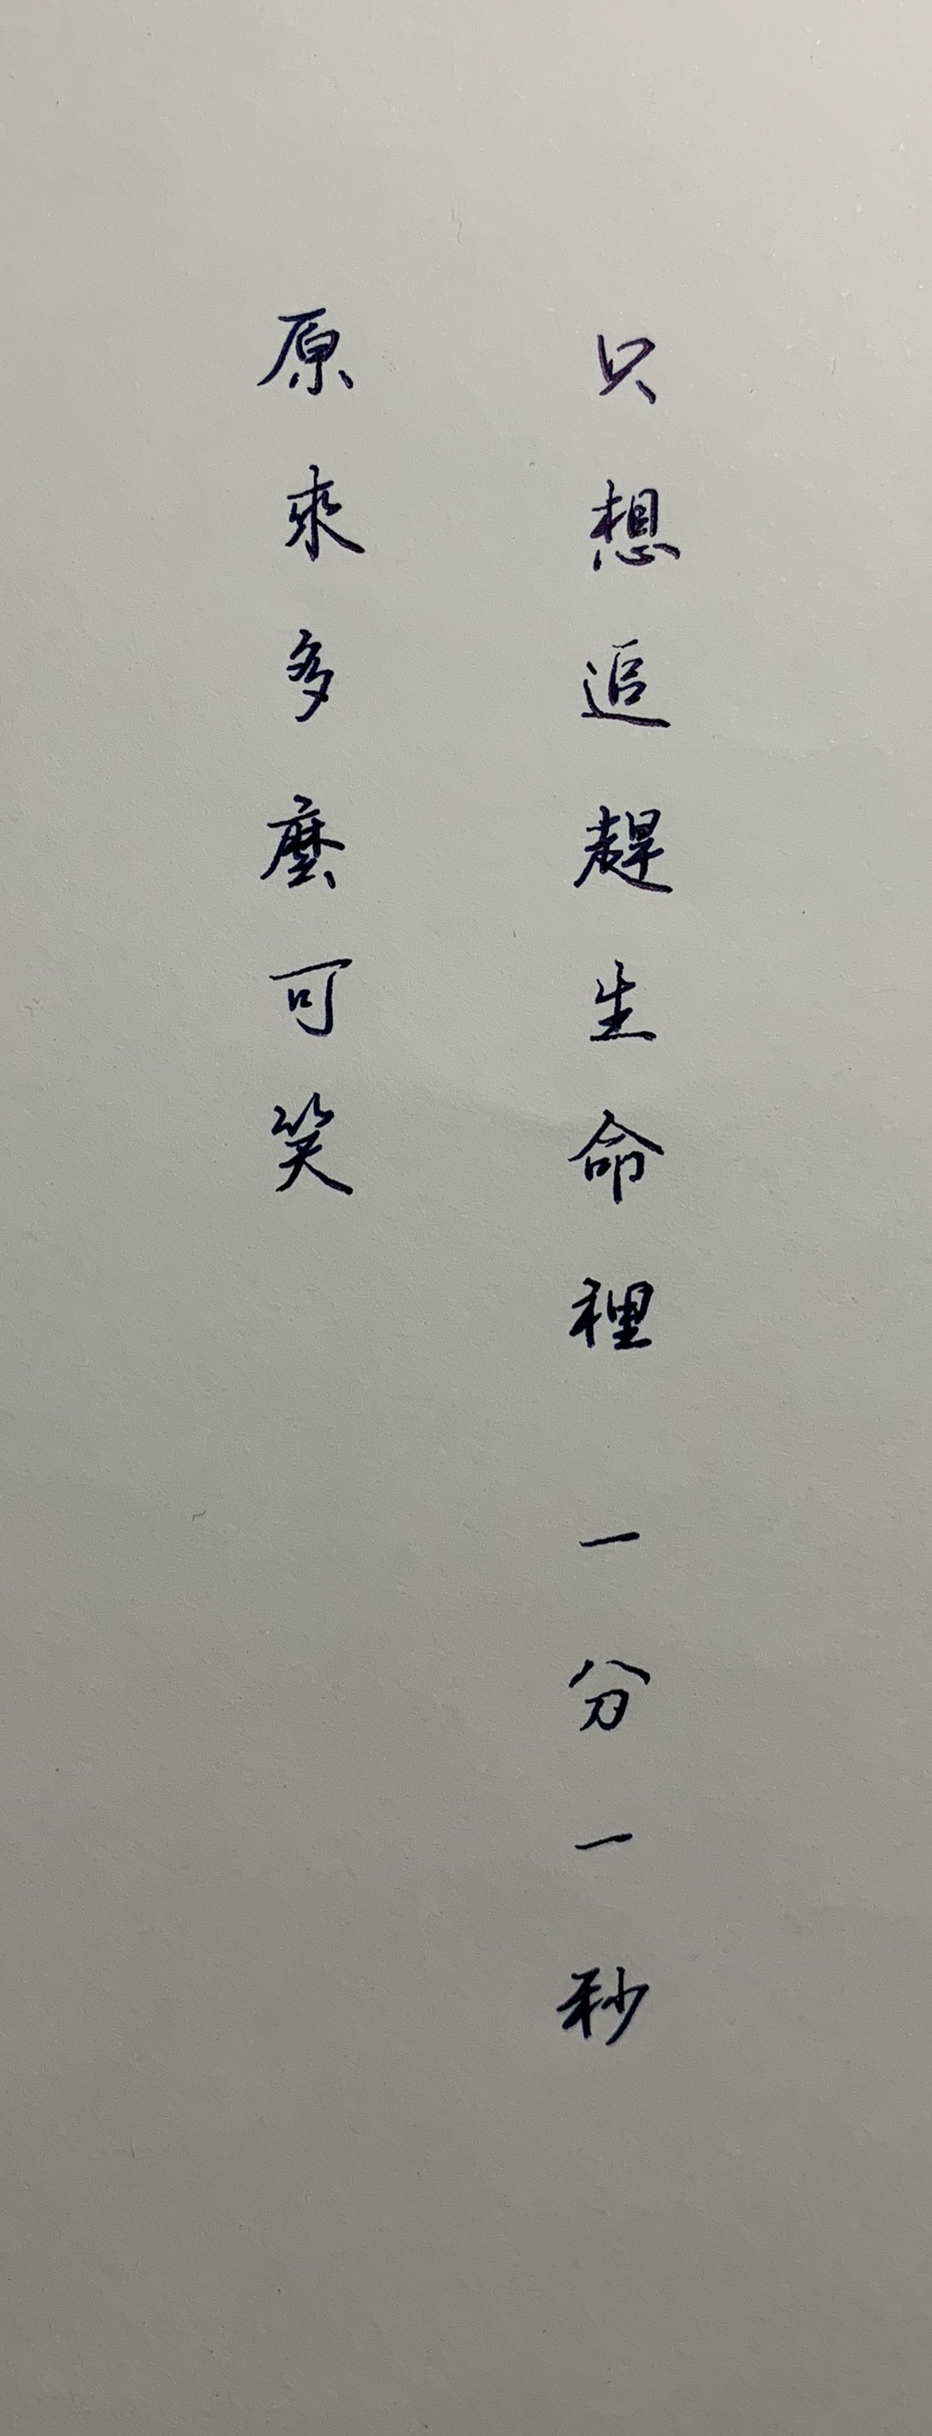 只想追趕生命裡 一分一秒
原來多麼可笑